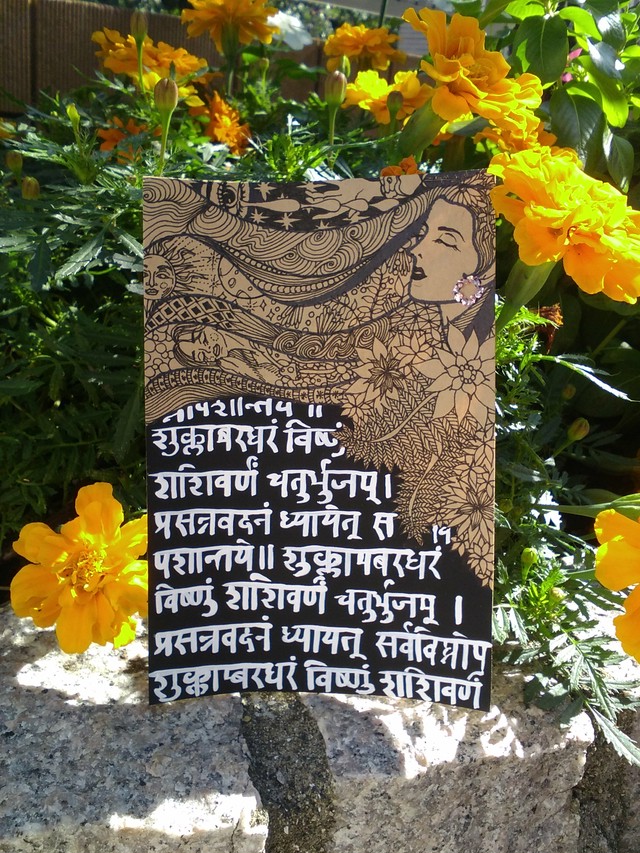 पशान्तये ॥
शुक्लाबरधरं विष्णुं
शशिवर्णं चतुर्भुजम्।
प्रसन्नवदनं ध्यायेत् स
पशान्तये॥ शुक्लाम्बरधरं
विष्णुं शशिवर्णं चतुर्भुजम् ।
प्रसन्नवदनं ध्यायेत् सर्वविघ्नोप
शुक्लाम्बरधरं विष्णुं शशिवर्णं